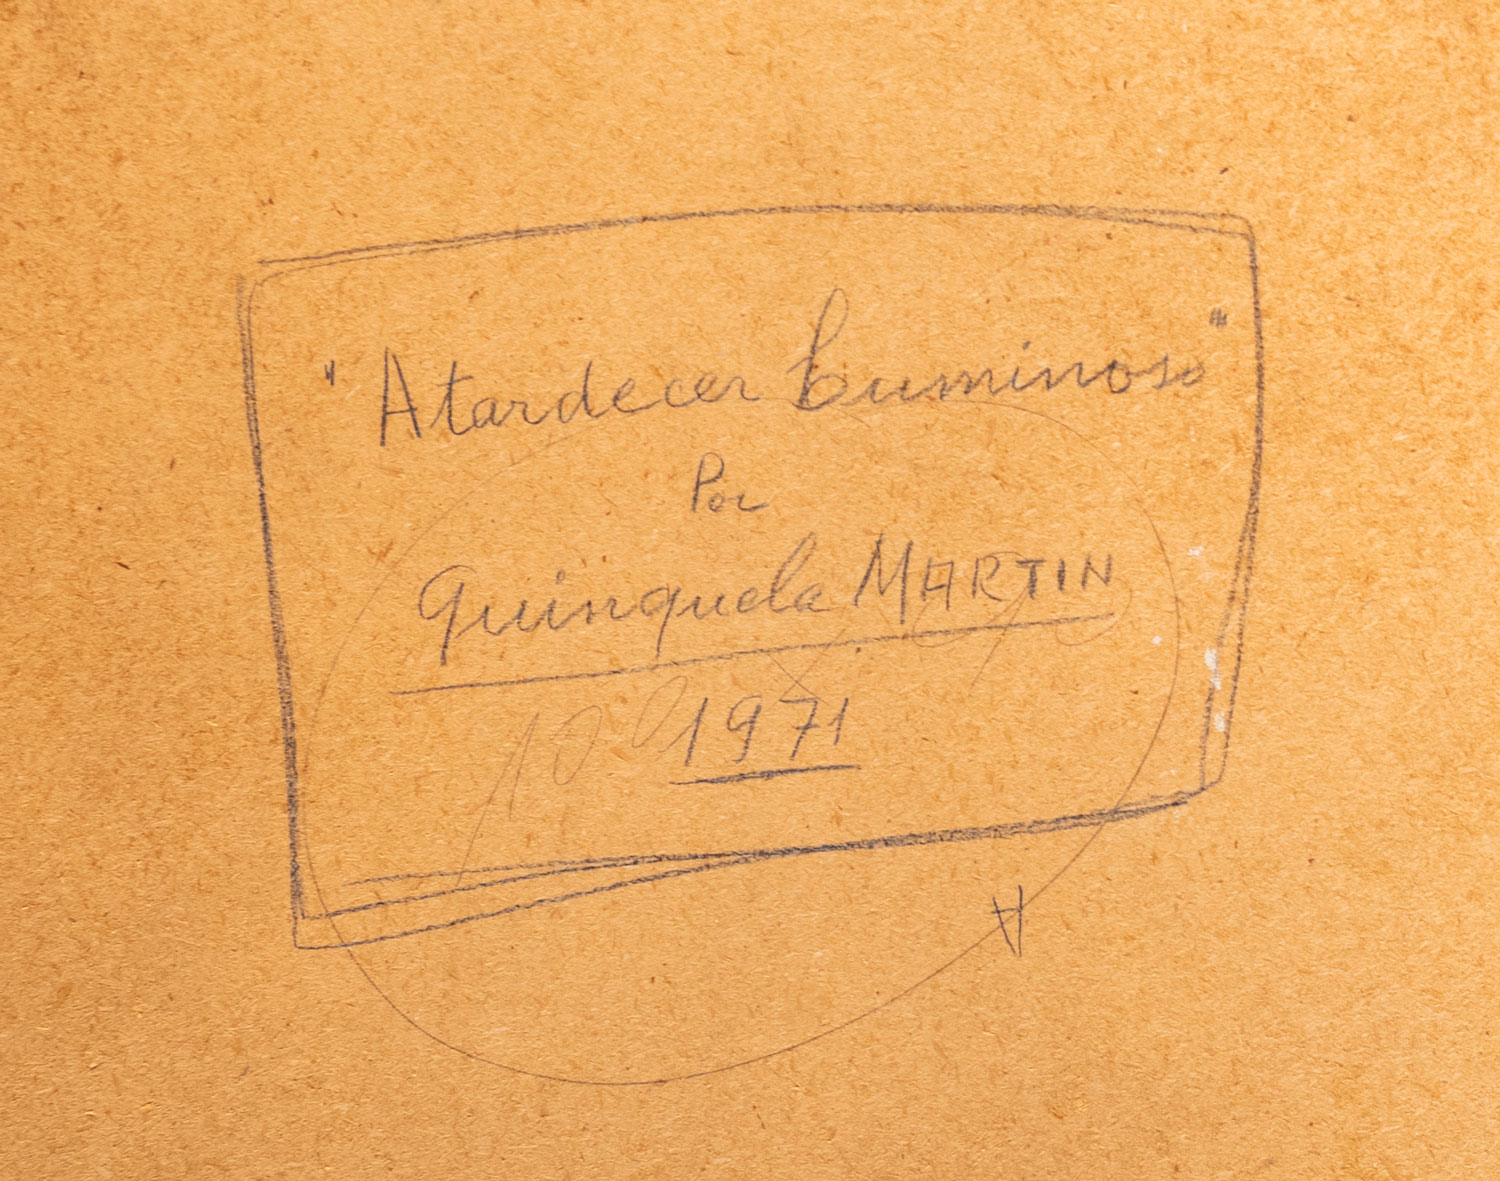 "Atardecer Luminoso"
Por
Quinquela MARTIN
1971
A